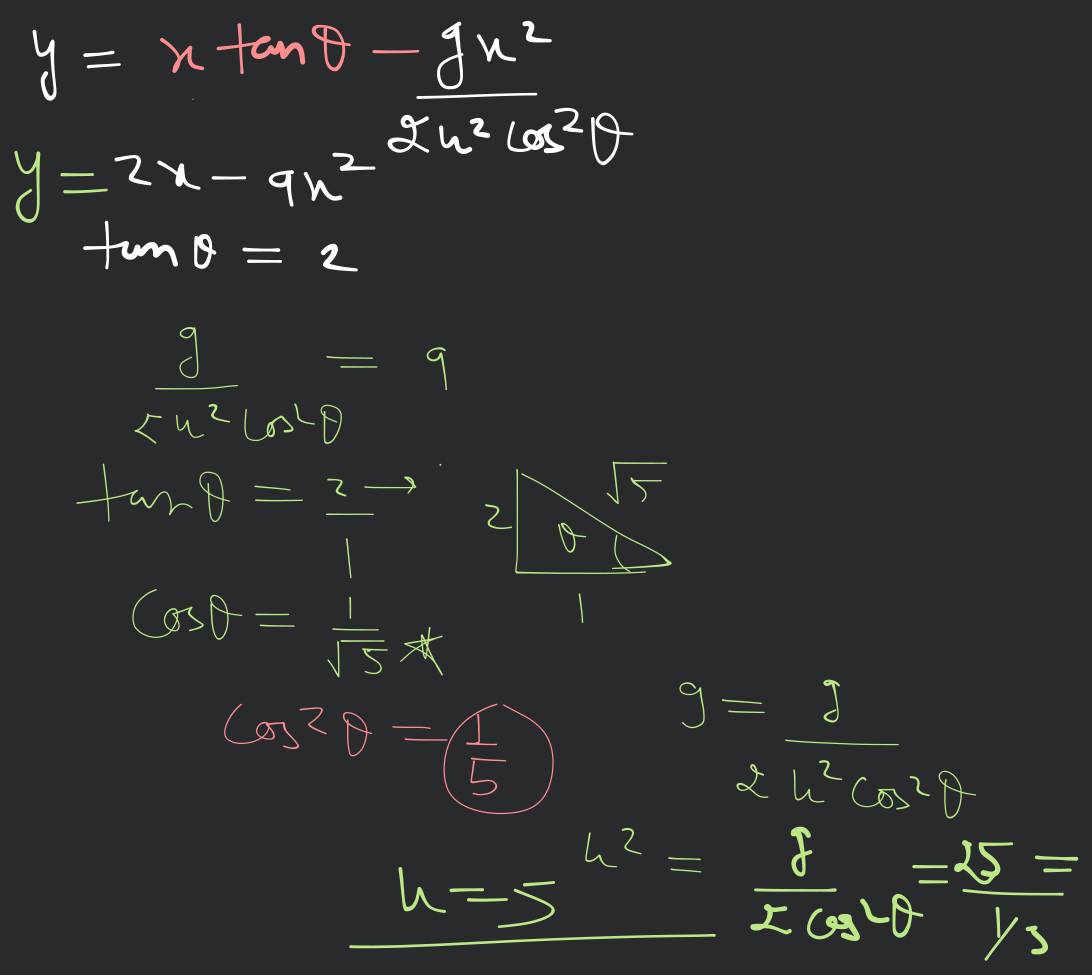 y = x tanθ − gx² / 2u² cos²θ
y = 2x − 9x²
tanθ = 2
g / 2u² cos²θ = 9
tanθ = 2/1 →
2 θ √5 1
cosθ = 1/√5 *
cos²θ = 1/5
9 = g / 2u² cos²θ
u² = g / 2cos²θ = 25 / 1/5 =
u = 5